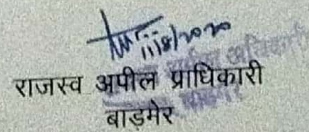 11/8/2020
राजस्व अपील प्राधिकारी
बाड़मेर